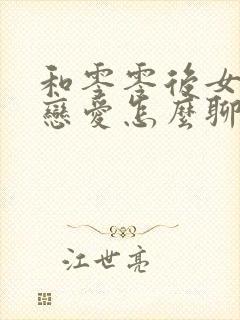 和零零後女
戀愛怎麼聊
江世亮